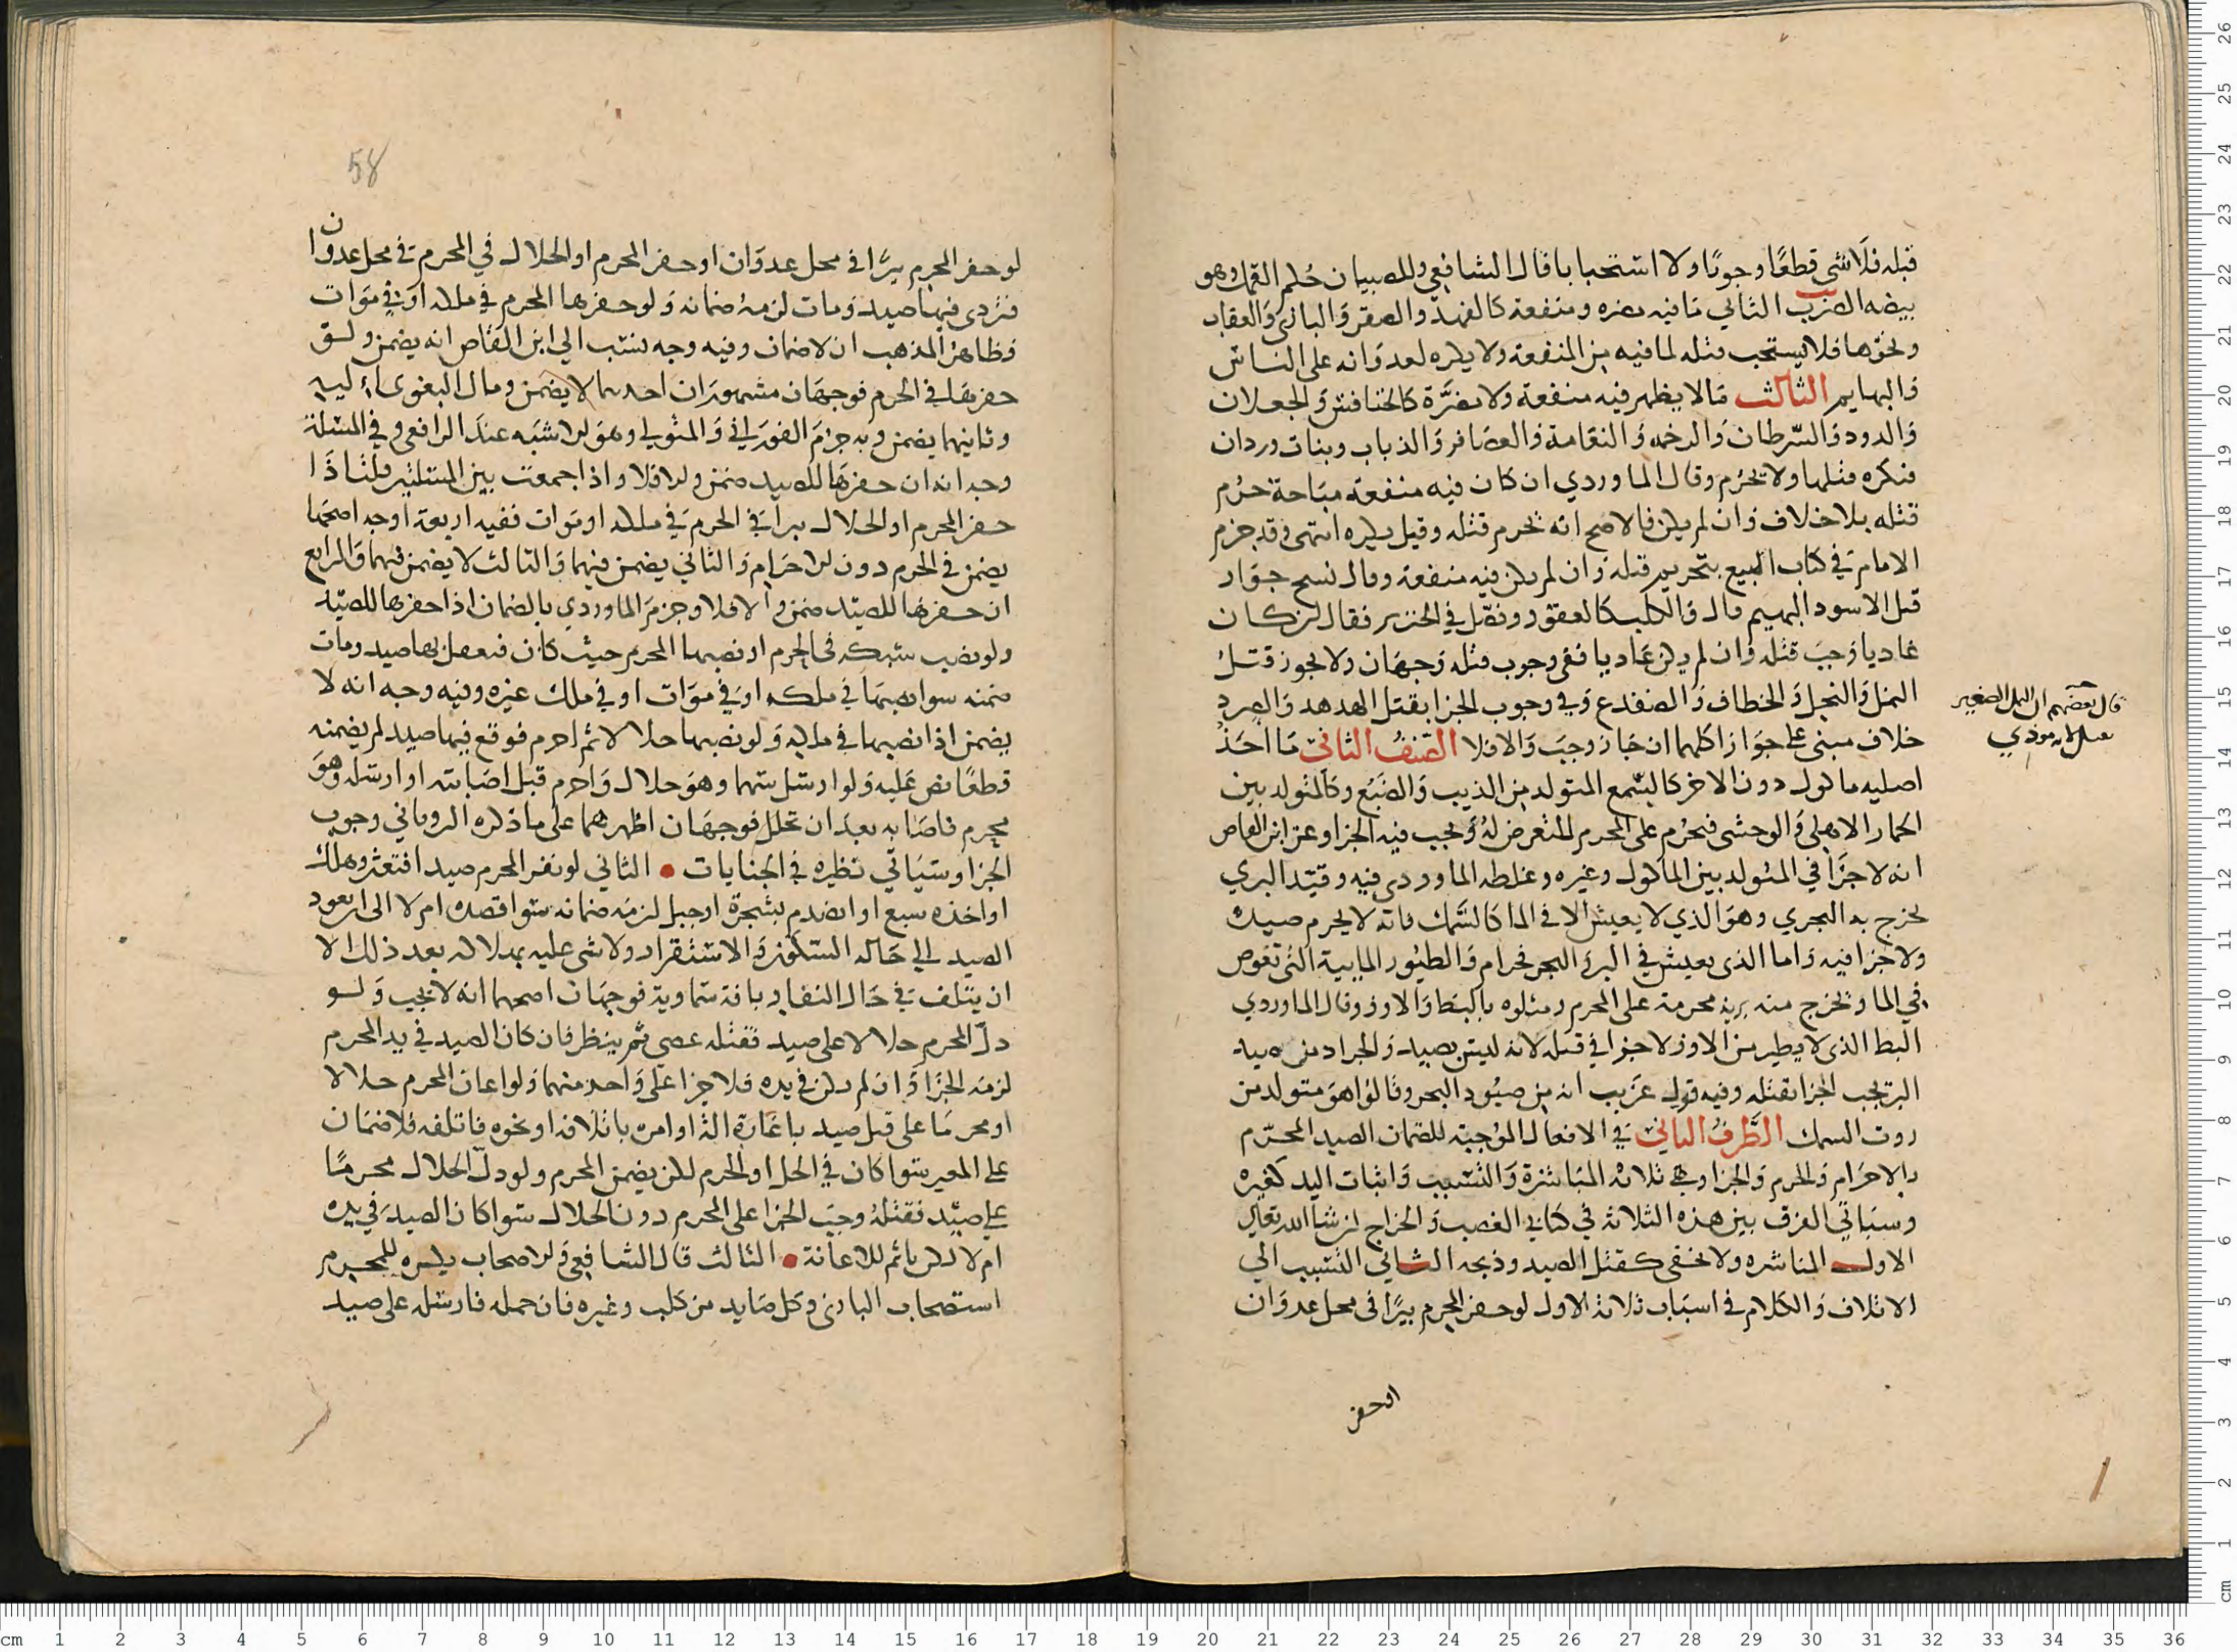 قبله فلا شي قطعًا وجوبًا ولا استحبابا قال الشافعي وللصبيان حُلم القمل وهو
بيضه الضرب الثاني مَا فيه مضره ومنفعة كالفهد والصقر وَالبازي وَالعقاب
ونحوها فلا يستحب قتله لما فيه من المنفعة ولا يكره لعدوَانه على الناس
وَالبهايم الثالث مَا لا يظهر فيه منفعة ولا مضرَّة كالخنافس وَالجعلان
وَالدود وَالسّرطان وَالرخمه وَالنعامة وَالعصَافر وَالذباب وبنات وردان
فيكره قتلها ولا يحرُم وقال الماوردي ان كان فيه منفعة مبَاحة حرُم
قتله بلا خلاف وَان لم يكن فالاصح انه يحرم قتله وقيل يكره انتهى وقد جزم
الامام في كتاب البيع بتحريم قتله وَان لم يكن فيه منفعة وقال نسخ جوَاز
قتل الاسود البهيم قال وَالكلب كالعقور وفصّل في الخنزير فقال ان كان
عَاديا وَجبَ قتله وَان لم يكن عَاديا ففي وجوب قتله وَجهَان ولا يجوز قتل
النمل وَالنحل وَالخطاف وَالضفدع وَفي وجوب الجزا بقتل الهدهد وَالصرد
خلاف مبنى على جوَاز اكلهما ان جَاز وجبَ وَالا فلا الصّنفُ الثانيّ مَا احَدُ
اصليه ماكول دون الاخر كالسّمع المتولد من الذيب وَالضّبُع وَكالمتولد بين
الحمار الاهلي وَالوحشي فيحرُم على المحرم التعرض لهُ وَيجب فيه الجزا وعن ابن القاص
انه لا جزَا في المتولد بين الماكول وغيره وغلطه الماوردي فيه وقيّد البري
يخرج به البحري وهوَ الذي لا يعيش الا في الما كالسَّمك فانه لا يحرم صيدك
ولا جزا فيه وَاما الذي يعيش في البر وَالبحر فحرام وَالطيُور المايية التي تغوص
في الما وَتخرج منه برية محرمة على المحرم ومثلوه بالبط وَالاوز وقال الماوردي
البط الذي لا يطير من الاوز لا جزا في قتله لانه ليس بصيد وَالجراد من صيد
البر يجب الجزا بقتله وفيه قول غريب انه من صيُود البحر وقالوا هوَ متولد من
روث السمك الطَّرفُ الثانيّ في الافعال المُوجبة للضمان الصيد المحرّم
بالاحرَام وَالحرم وَالجزا وهي ثلاثة المبَاشرة وَالتسّبيب وَاثبات اليد كغيره
وسيَاتي الفرق بين هذه الثلاثة في كتابي الغصب وَالخراج ان شا الله تعالى
الاول المباشره ولا تخفى كقتل الصيد وذبحه الثاني التسّبيب الي
الاتلاف وَالكلام في اسبَاب ثلاثة الاول لو حفر المحرم بيرًا في محل عدوَان
او حفر
قال بعضهم ان النمل الصغير
يقتل لانه موذي
58
لو حفر المحرم بيرًا في محل عدوَان او حفر المحرم او الحلال في المحرم في محل عدوان
فتردى فيها صيد وَمات لزمهُ ضمانه وَلو حفرها المحرم في ملكه اوَ في موَات
فظاهرُ المذهب ان لا ضمان وفيه وجه ينسب الي ابن القاص انه يضمن ولو
حفرهَا في الحرم فوجهَان مشهورَان احدهما لا يضمن ومال البغوى اليه
وثانيهما يضمن وَبه جزمَ الفورَاني وَالمتولي وهوَ الاشبَه عندَ الرافعي وفي المسئلة
وجه انه ان حفرهَا للصيد ضمن والا فلا واذا جمعت بين المسئلتين قلنا اذَا
حفر المحرم او الحلال بيرا في الحرم في ملكه او موَات ففيه اربعة اوجه اصحها
يضمن في الحرم دون الاحرَام وَالثاني يضمن فيهما وَالثالث لا يضمن فيهما وَالرابع
ان حفرهَا للصيّد ضمن وَالا فلا وجزمَ الماوردي بالضمان اذا حفرها للصيّد
ولو نصب شبكه في الحرم او نصبها المحرم حيث كان فتعقل بها صيد ومات
ضمنه سوا نصبهَا في ملكه اوَ في موَات او في ملك غيره وفيه وجه انه لا
يضمن اذا نصبها في ملكه وَلو نصبها حلالا ثم احرم فوقع فيها صيد لم يضمنه
قطعًا نص عَليه وَلو ارسَل سَهما وهوَ حلال وَاحرم قبل اصَابته او ارسَله وَهوَ
محرم فاصَابه بعدَ ان تحلل فوجهَان اظهرهما على ما ذكره الروياني وجوب
الجزا وسَيَاتي نظيره في الجنايات • الثاني لو نفر المحرم صيدا فتعثر وهلك
او اخذه سبع او انصدم بشجرة او جبل لزمَه ضمانه سَوا قصده ام لا الى ان يعود
الصيد الي حَاله السكون وَالاستقرار ولا شي عليه بهلاكه بعد ذلك الا
ان يتلف في حَال النفار بافة سَماوية فوجهَان اصحهما انه لا يجب وَلو
دلّ المحرم حلالا على صيد فقتله عصى ثم ينظر فان كان الصيد في يد المحرم
لزمَه الجزَا وَان لم يكن في يده فلا جزا عَلى وَاحد منهما وَلو اعان المحرم حلالا
او محرمَا على قتل صيد باعَارة الة او امره باتلافه او نحوه فاتلفه فلا ضمَان
علي المعير سَوا كان في الحل او الحرم لكن يضمن المحرم ولو دلّ الحلال محرمًا
علي صيّد فقتلهُ وجبَ الجزا على المحرم دون الحلال سَوا كان الصيدَ في يده
ام لا لكن ياثم للاعَانة • الثالث قال الشافعي وَالاصحاب يكره للمحرم
استصحاب البازى وَكل صَايد من كلب وغيره فان حمله فارسَله على صيد